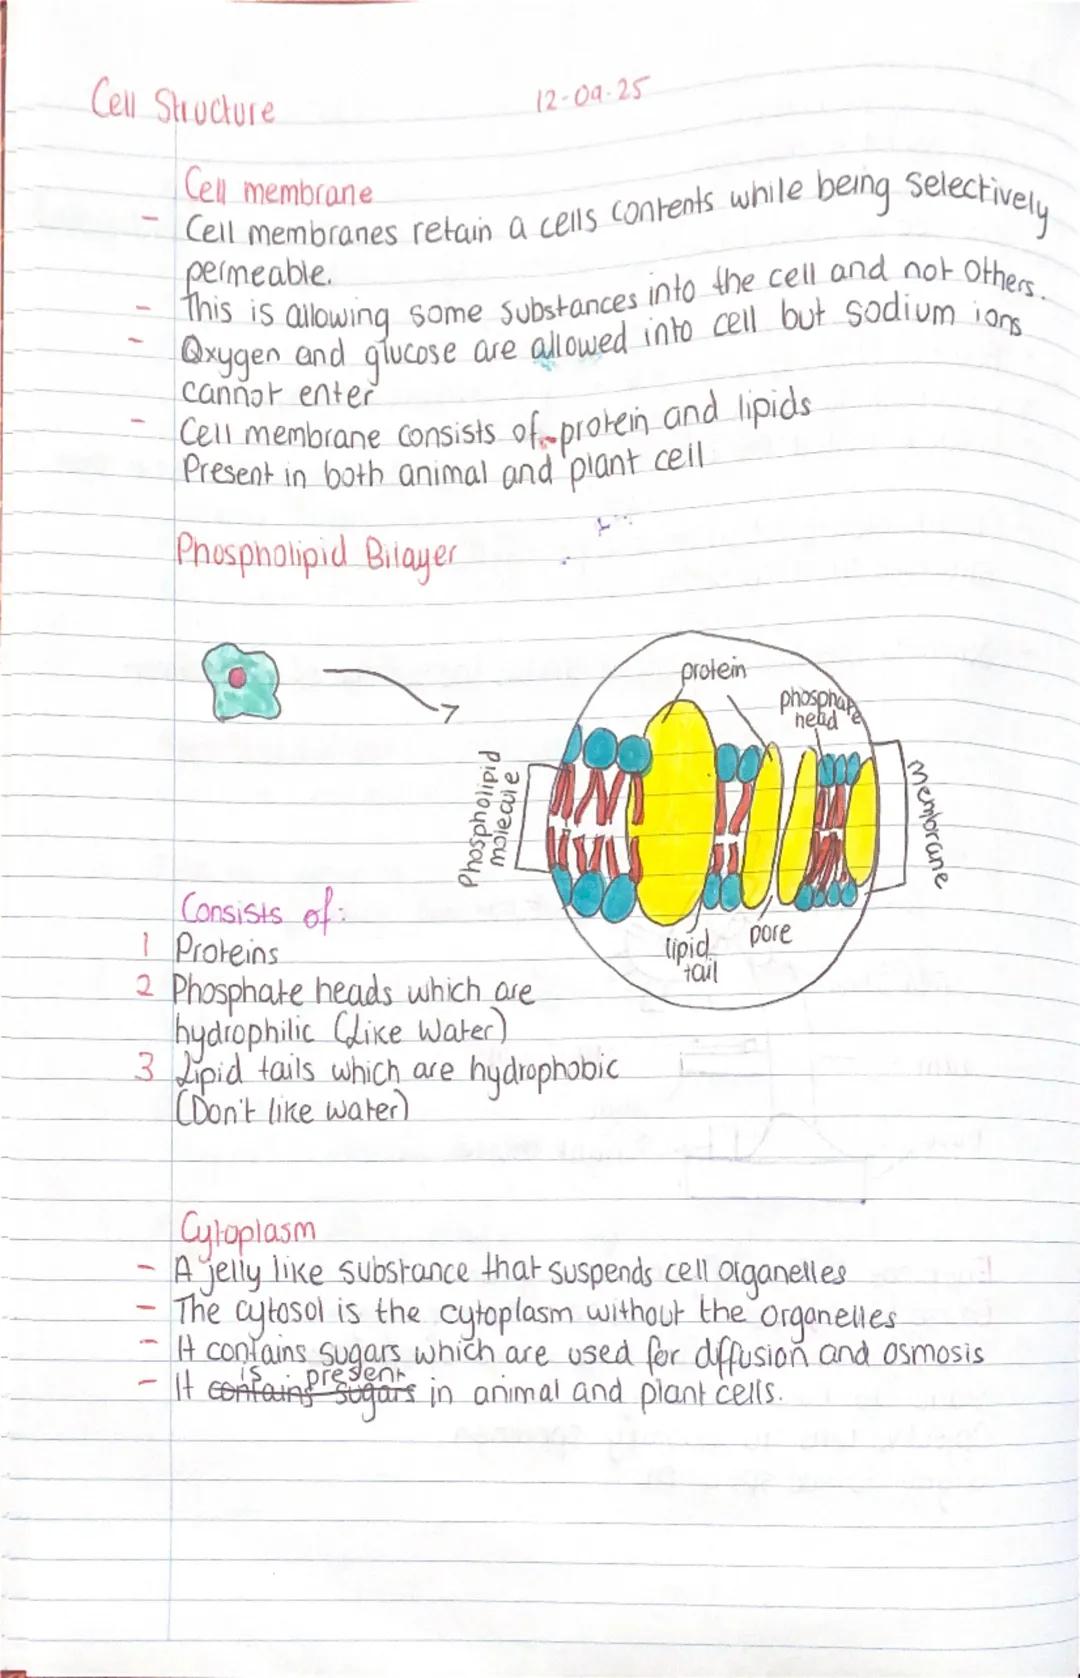 Cell Structure 12-09-25
Cell membrane
- Cell membranes retain a cells contents while being selectively
permeable.
- This is allowing some substances into the cell and not others.
- Oxygen and glucose are allowed into cell but sodium ions
cannot enter
- Cell membrane consists of protein and lipids
Present in both animal and plant cell
Phospholipid Bilayer
protein
phosphate
head
Phospholipid
molecule
membrane
lipid
tail
pore
Consists of:
1 Proteins
2 Phosphate heads which are
hydrophilic (Like Water)
3 Lipid tails which are hydrophobic
(Don't like water)
Cytoplasm
- A jelly like substance that suspends cell organelles
- The cytosol is the cytoplasm without the organelles
- It contains sugars which are used for diffusion and osmosis
- It contains sugars is present in animal and plant cells.